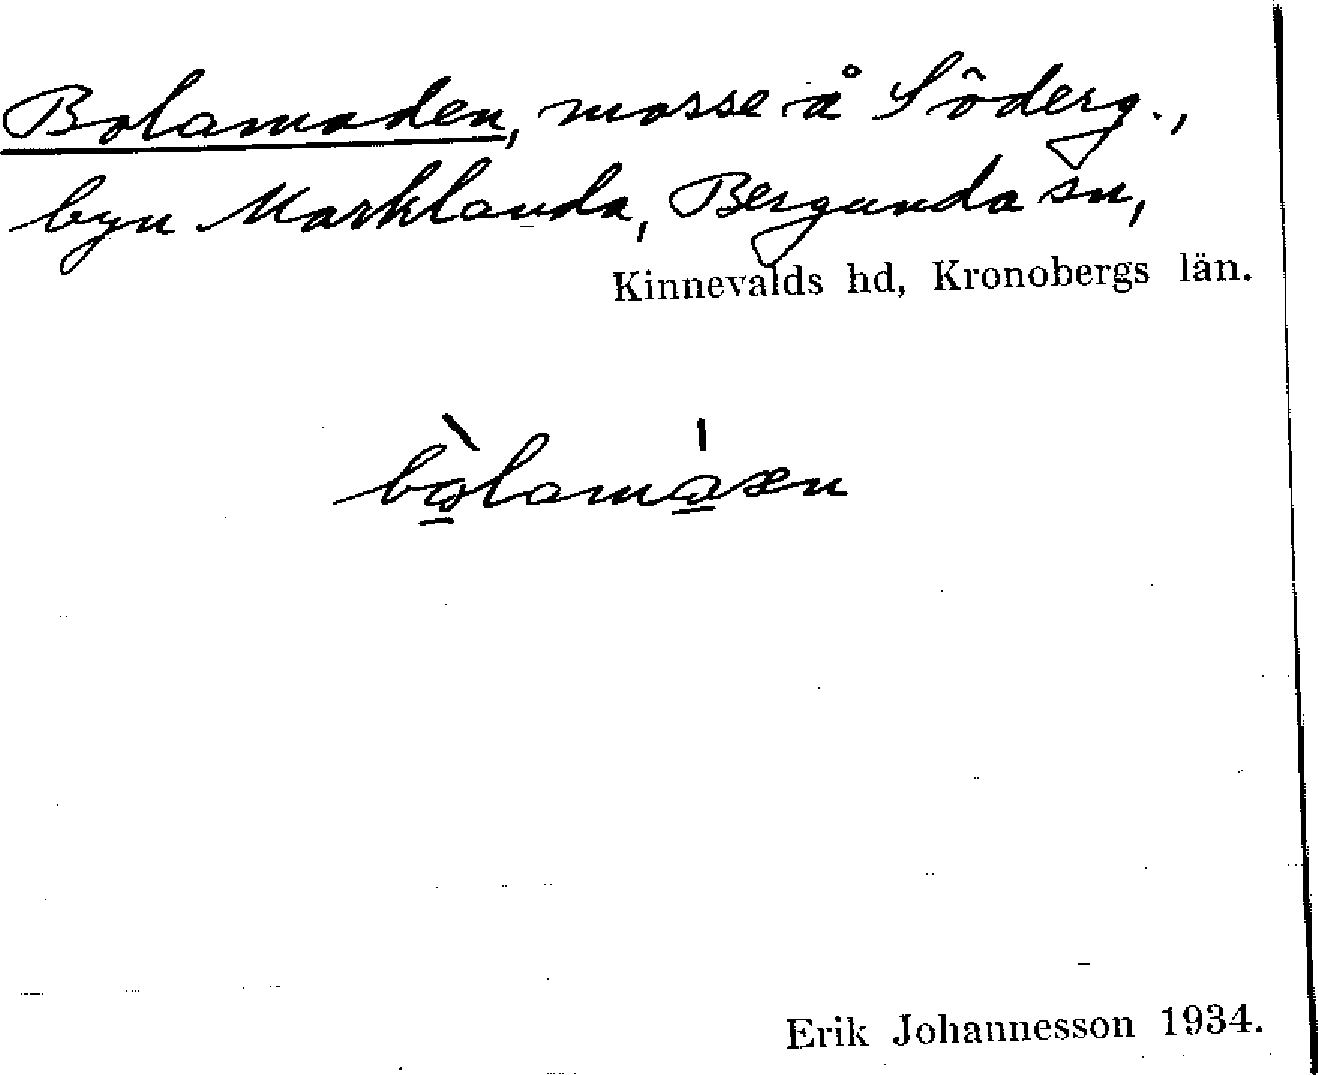 Bolamaden, mosse å Söderg.,
byn Marklanda, Bergunda sn,
Kinnevalds hd, Kronobergs län.
Erik Johannesson 1934.